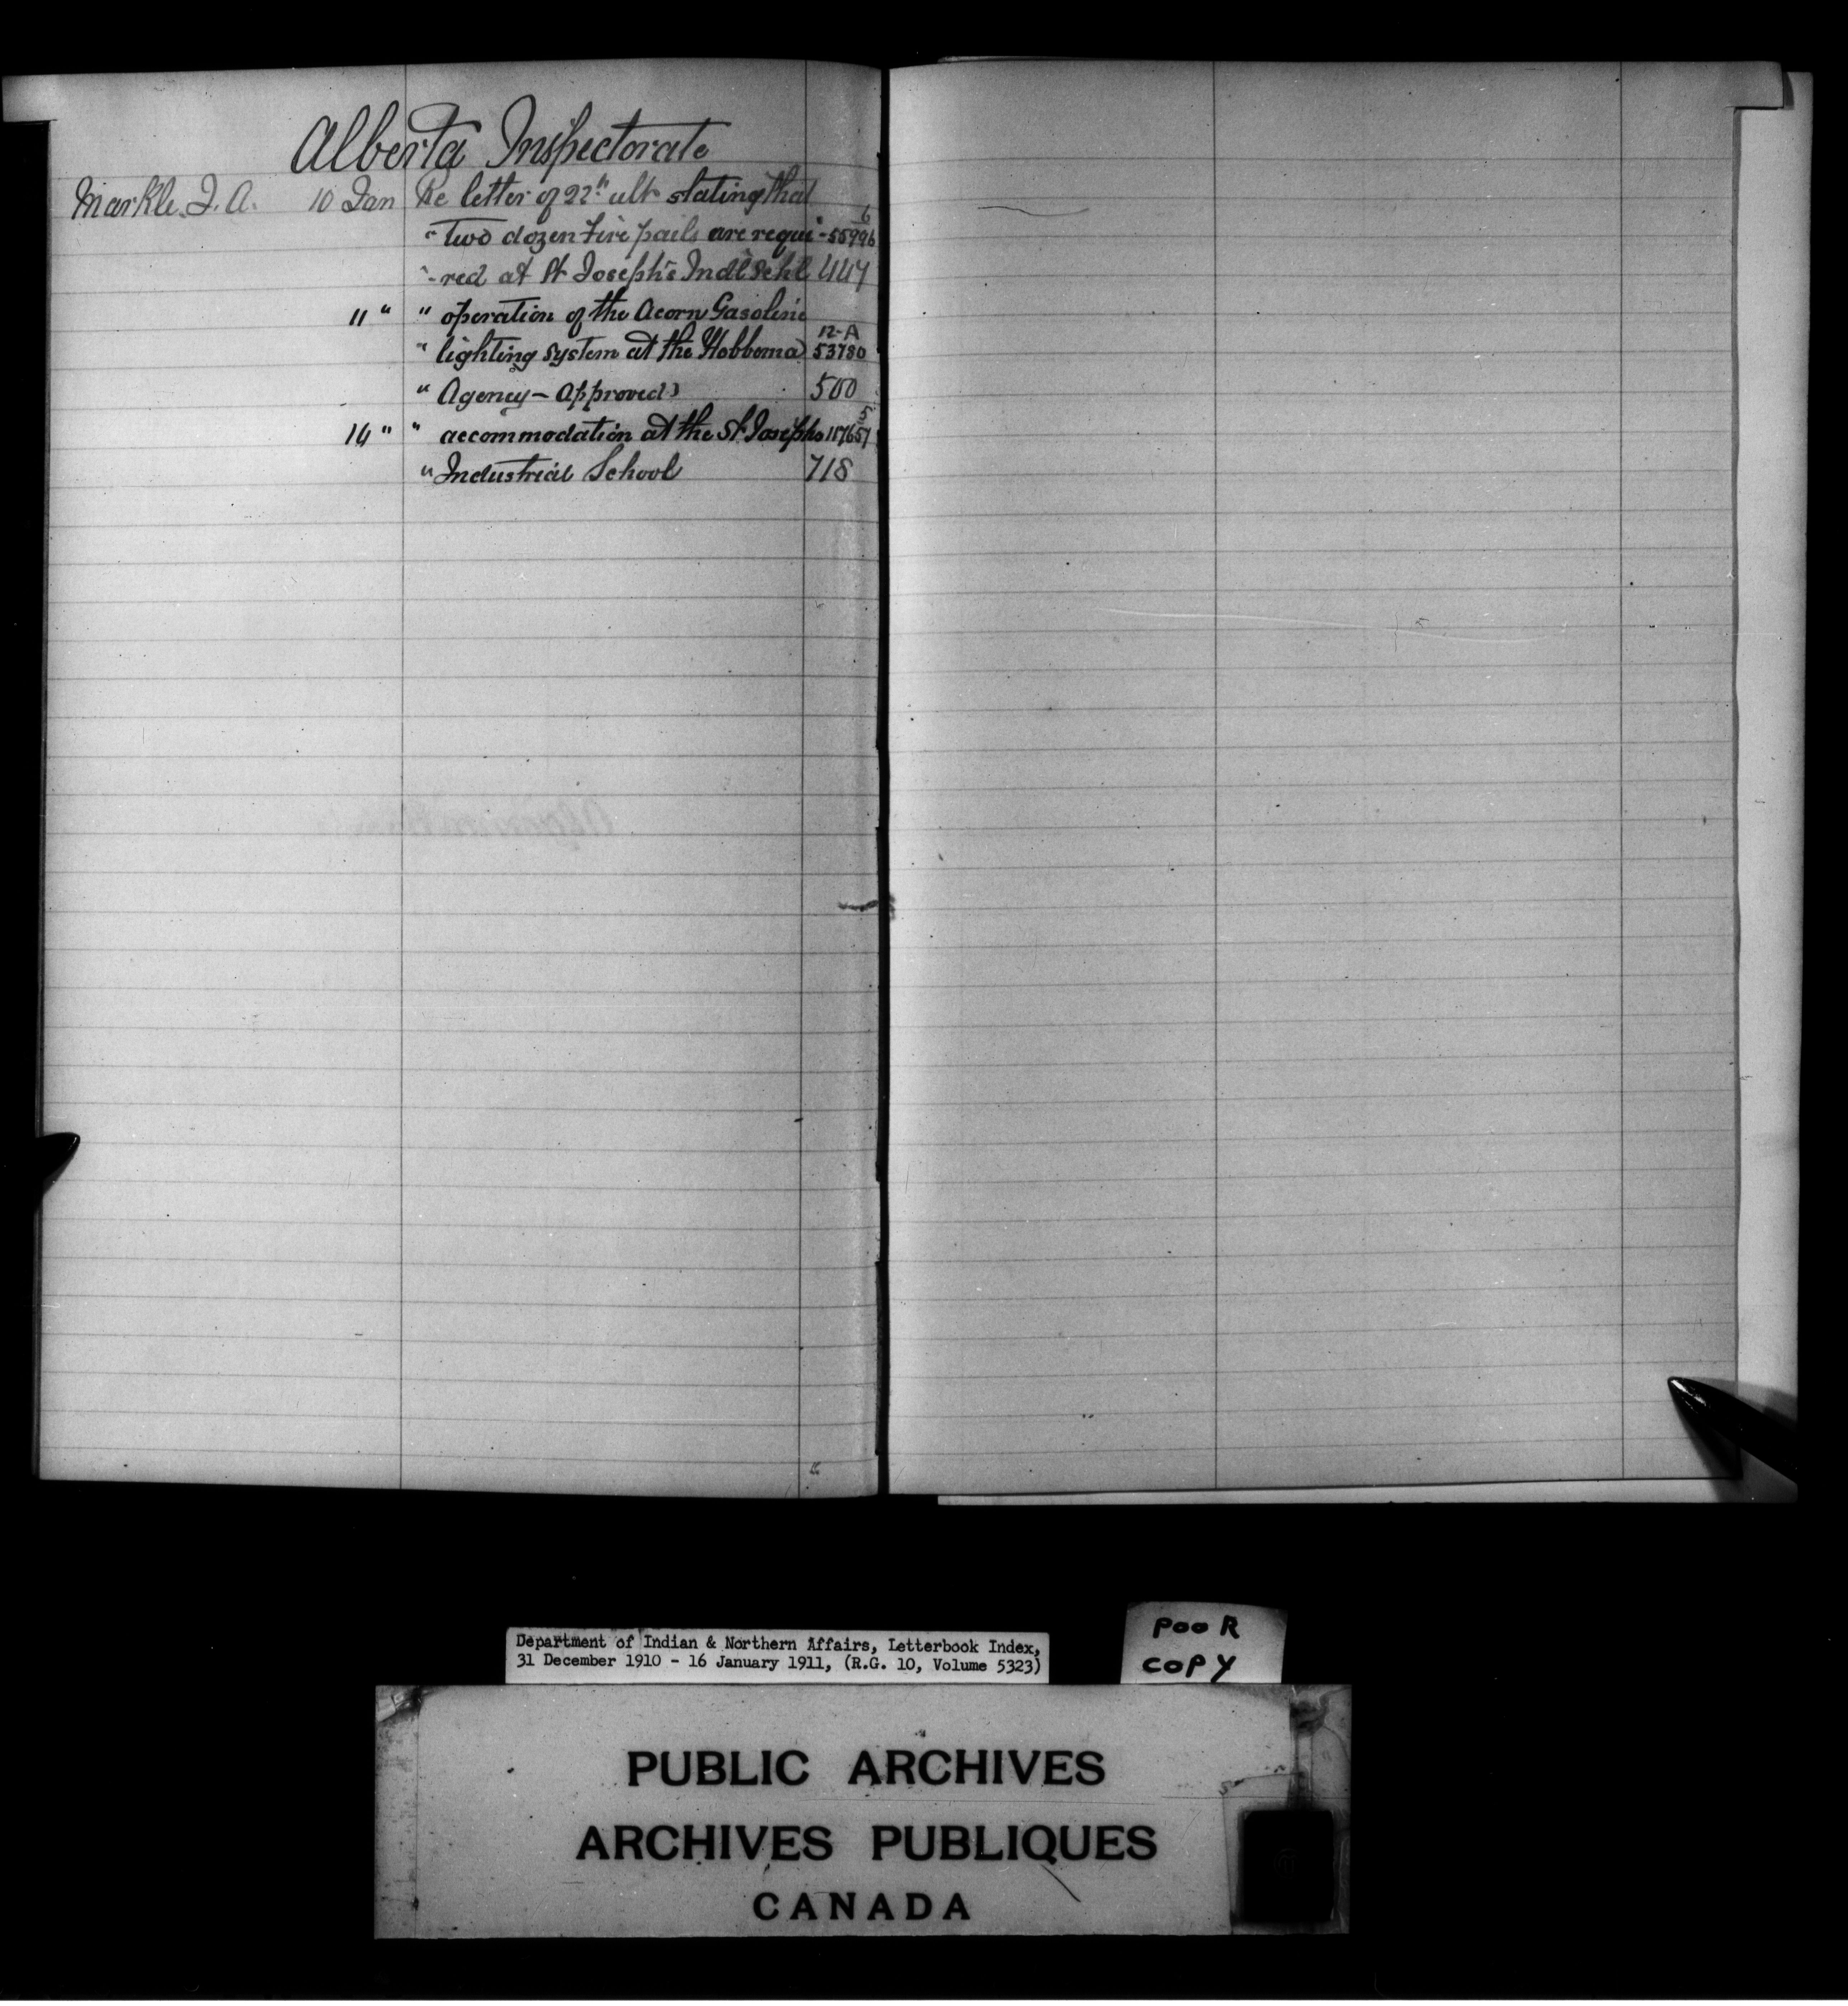 Alberta Inspectorate
Markle. J. A. 10 Jan Re letter of 22" ult stating that
" Two dozen fire pails are requi- 6 55996
"-red at St Joseph's Ind'l Schl 447
11 " " operation of the Acorn Gasoline
" lighting system at the Hobbema 12-A 53780
" Agency - Approved 500
14 " " accommodation at the St Josephs 5 117657
" Industrial School 718
Department of Indian & Northern Affairs, Letterbook Index,
31 December 1910 - 16 January 1911, (R.G. 10, Volume 5323)
POOR
COPY
PUBLIC ARCHIVES
ARCHIVES PUBLIQUES
CANADA